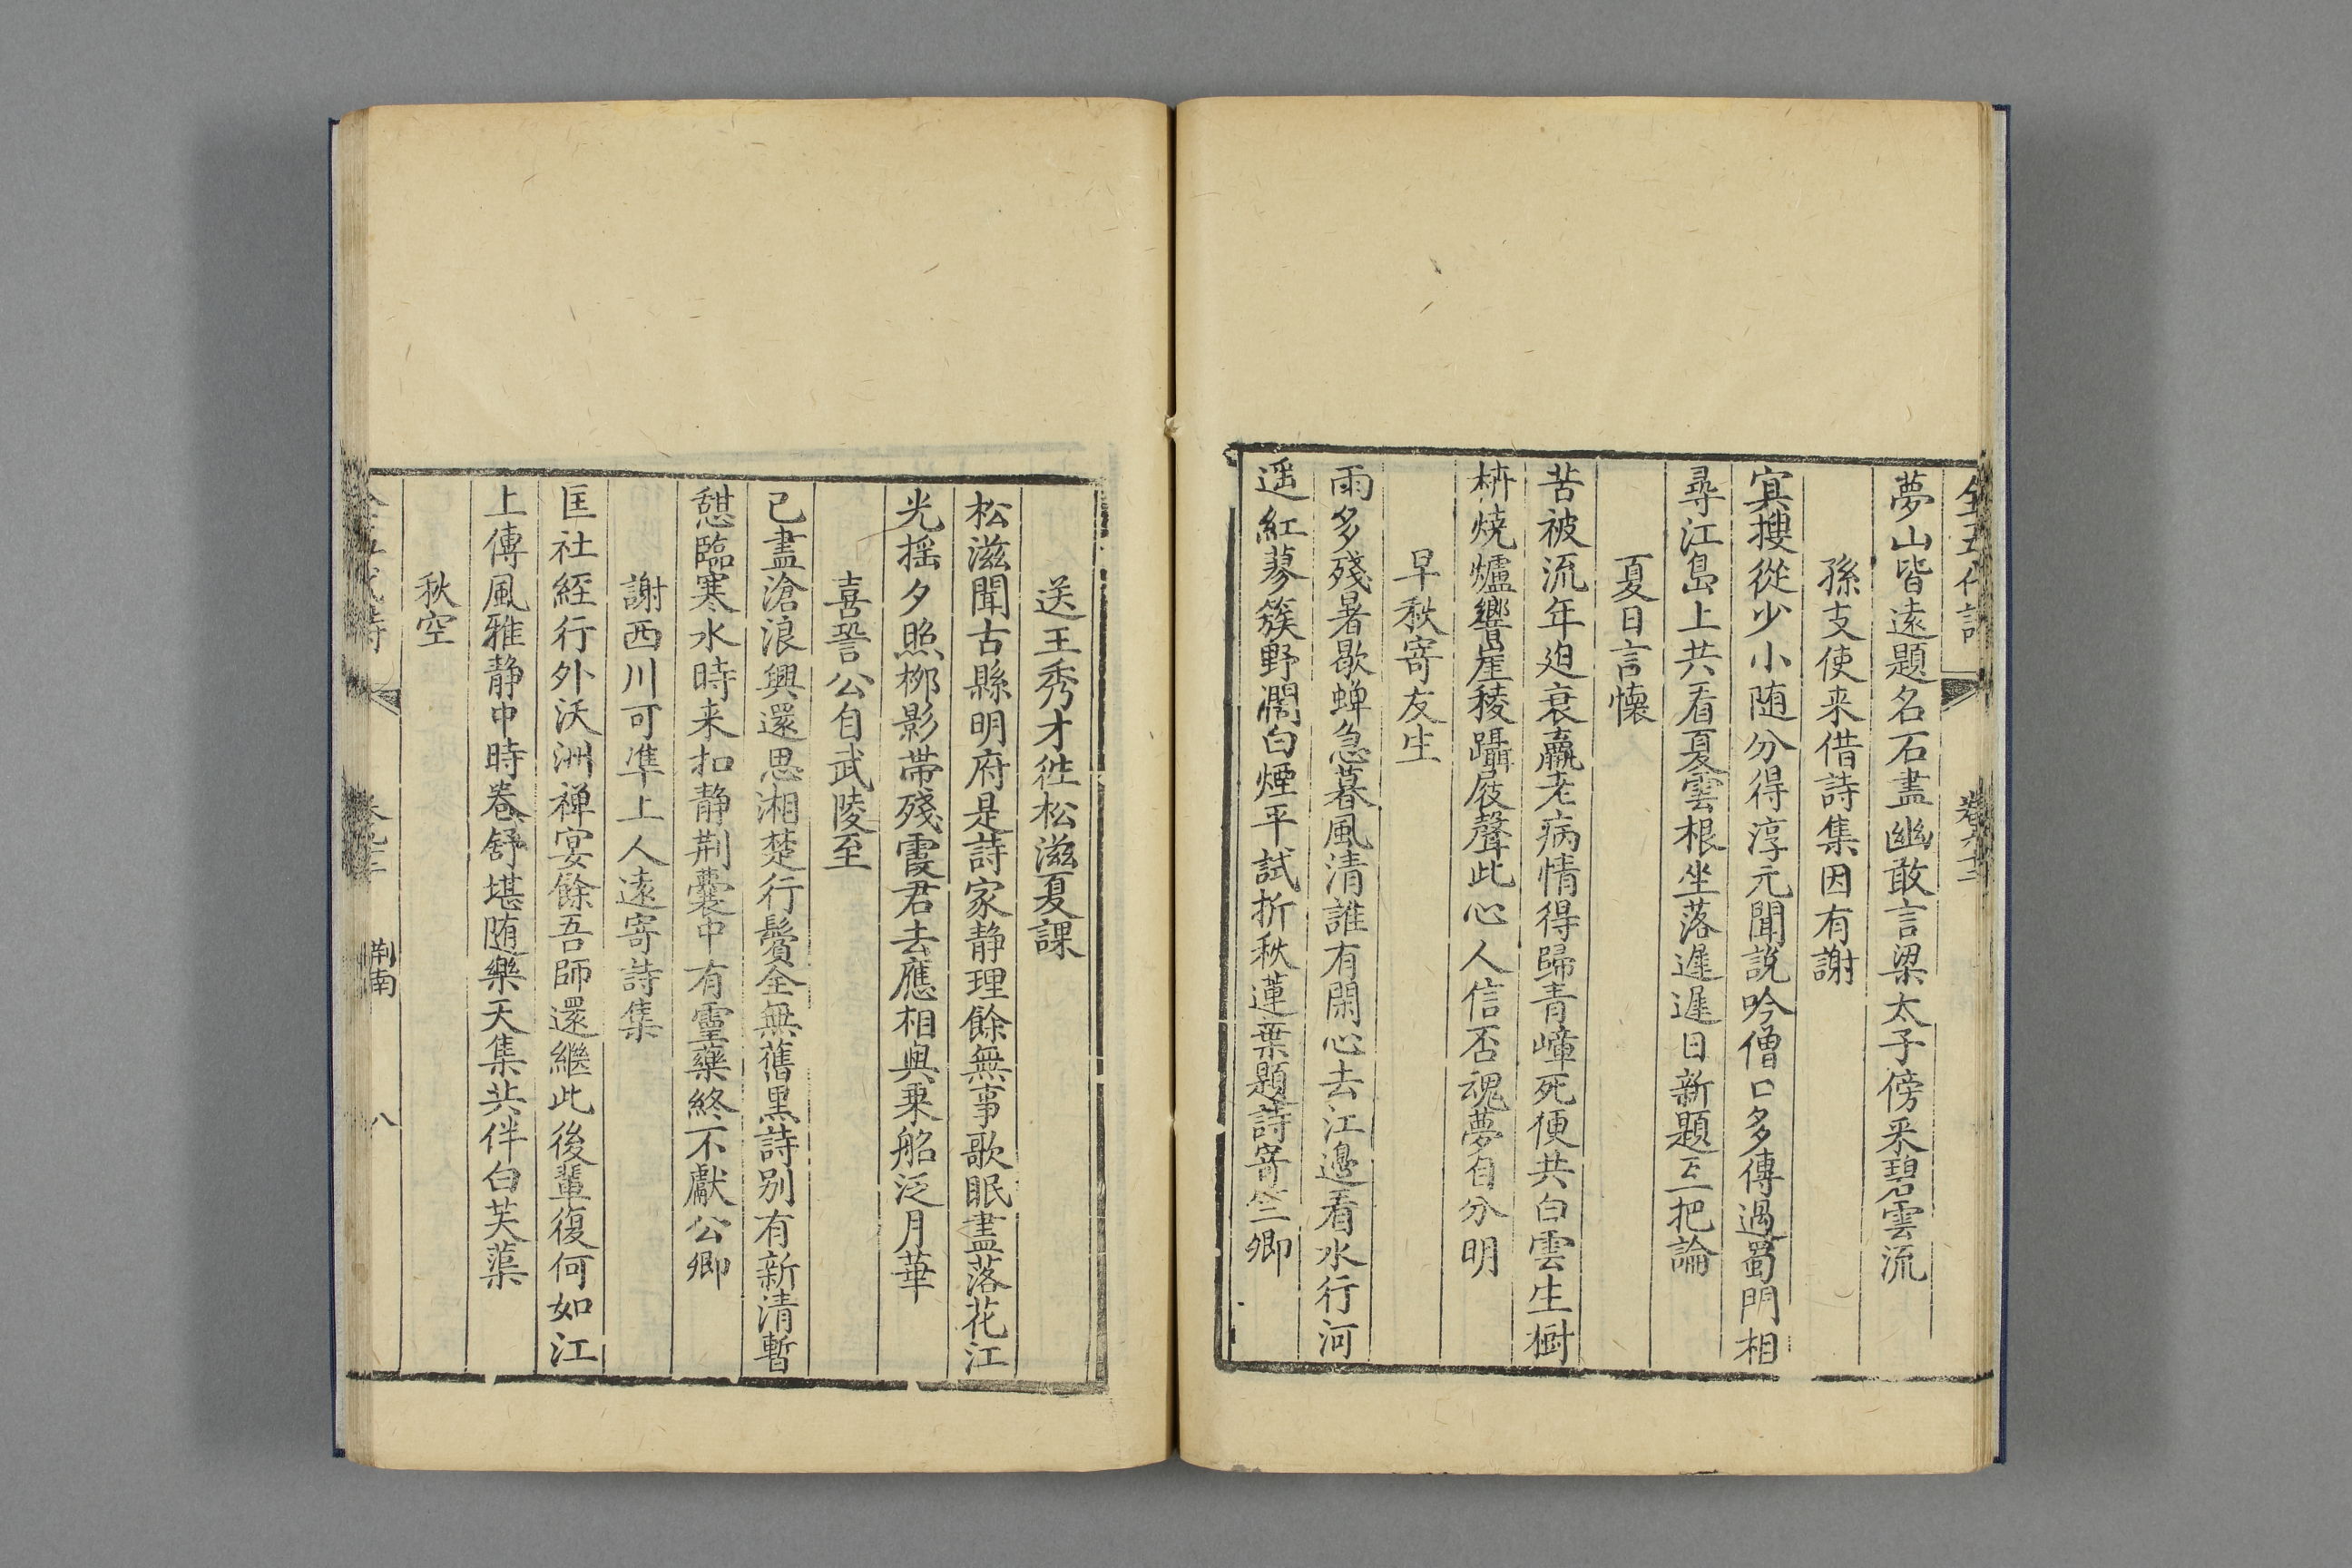 全五代詩
夢山皆遠題名石盡幽敢言梁太子傍采碧雲流
孫支使来借詩集因有謝
冥搜從少小随分得淳元聞說吟僧口多傳過蜀門相
尋江島上共看夏雲根坐落遲遲日新題互把論
夏日言懷
苦被流年迫衰羸老病情得歸青嶂死便共白雲生樹
枿燒爐響崖稜躡屐聲此心人信否魂夢自分明
早秋寄友生
雨多殘暑歇蟬急暮風清誰有閑心去江邊看水行河
遥紅蓼簇野濶白煙平試折秋蓮葉題詩寄竺卿
送王秀才徃松滋夏課
松滋聞古縣明府是詩家静理餘無事歌眠盡落花江
光揺夕照栁影帶殘霞君去應相與乗船泛月華
喜䛒公自武陵至
已盡滄浪興還思湘楚行鬢全無舊黒詩别有新清暫
憇臨寒水時来扣静荆囊中有靈藥終不獻公卿
謝西川可準上人遠寄詩集
匡社經行外沃洲禅宴餘吾師還繼此後輩復何如江
上傳風雅静中時卷舒堪随樂天集共伴白芙蕖
秋空
荆南
八